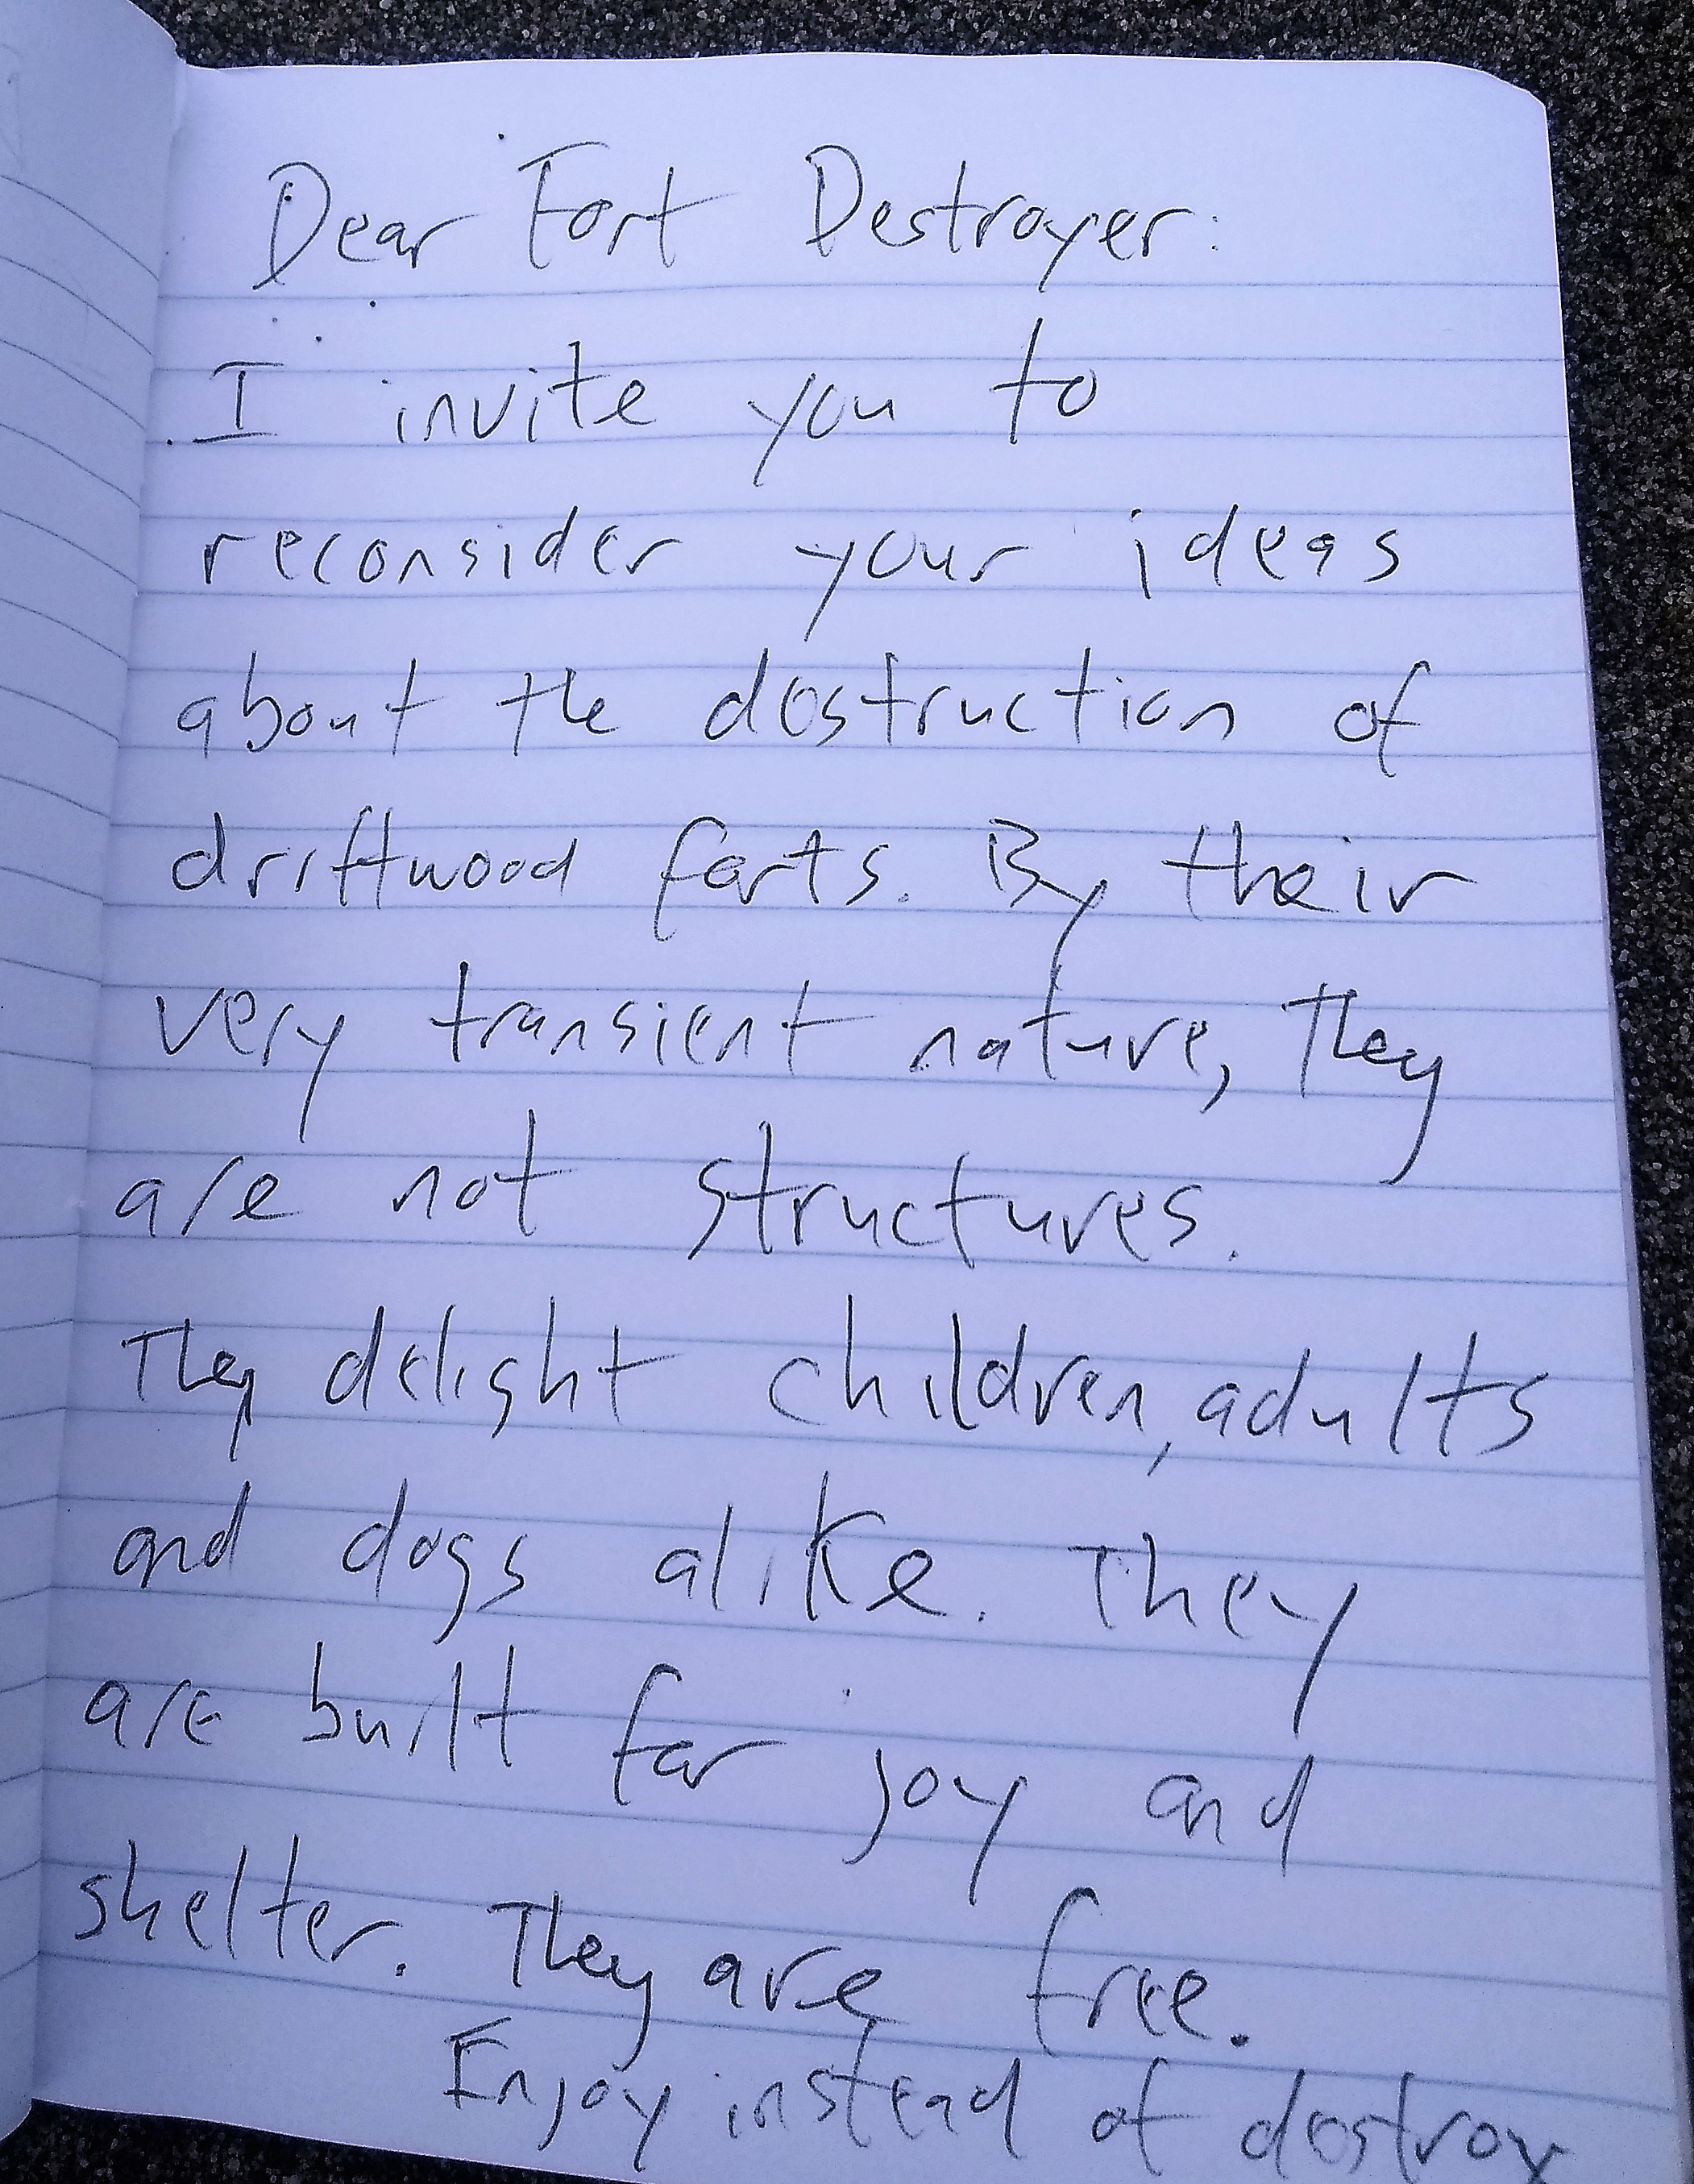 Dear Fort Destroyer:
I invite you to
reconsider your ideas
about the destruction of
driftwood forts. By their
very transient nature, They
are not structures.
They delight children, adults
and dogs alike. They
are built for joy and
shelter. They are free.
Enjoy instead of destroy